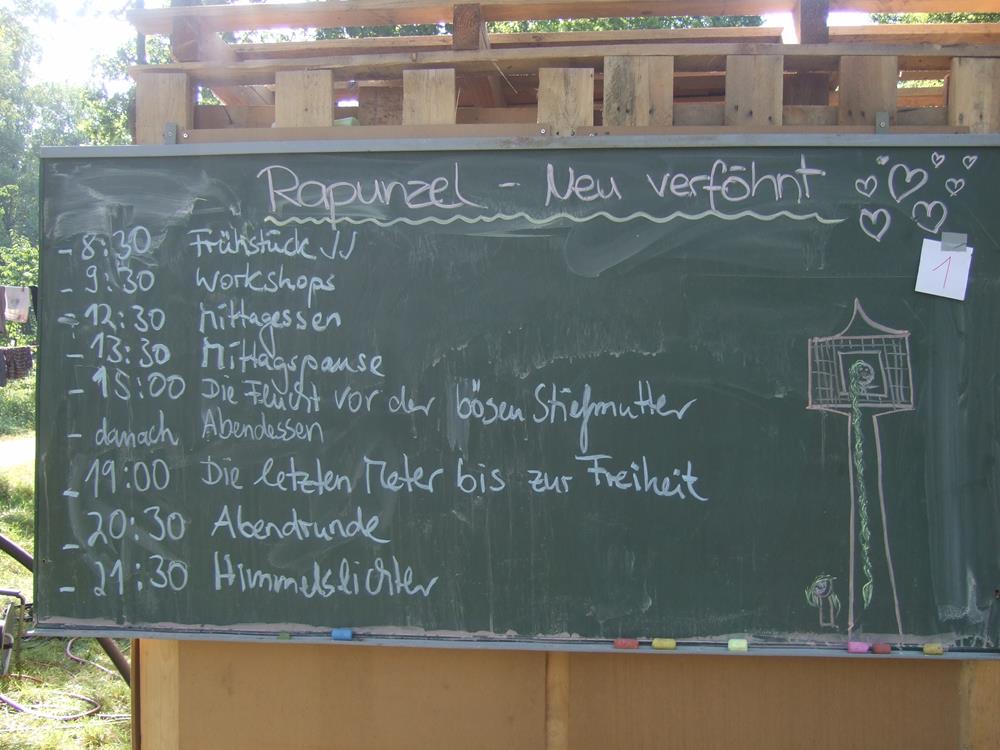 Rapunzel - Neu verföhnt
1
- 8:30 Frühstück JJ
- 9:30 Workshops
- 12:30 Mittagessen
- 13:30 Mittagspause
- 15:00 Die Flucht vor der bösen Stiefmutter
- danach Abendessen
- 19:00 Die letzten Meter bis zur Freiheit
- 20:30 Abendrunde
- 21:30 Himmelslichter